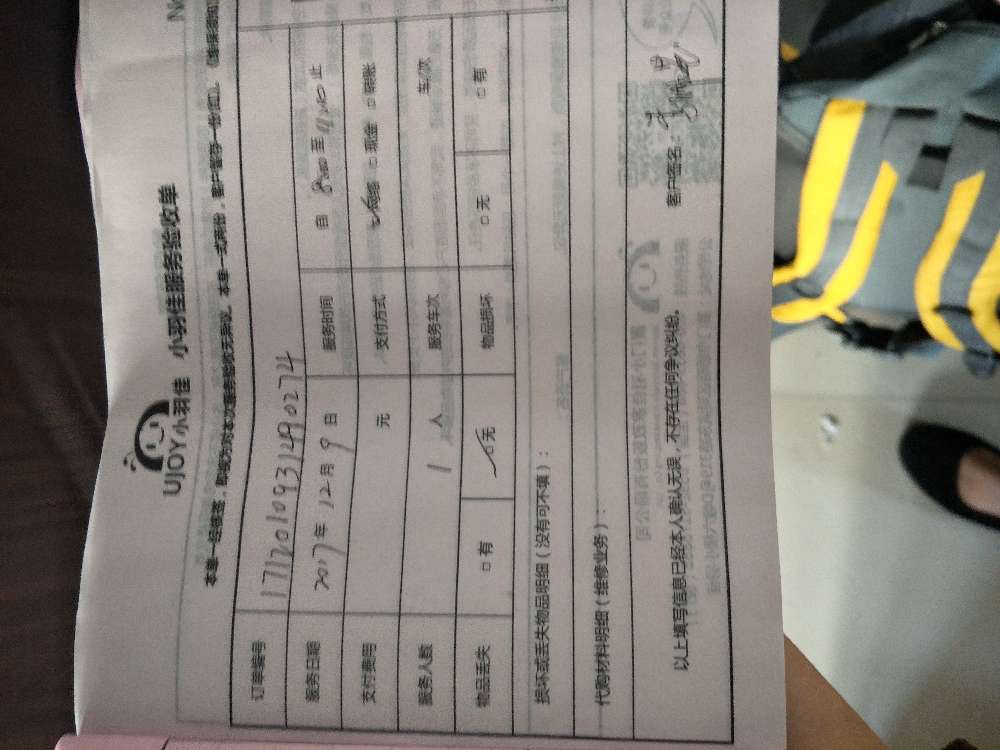 No
UJOY小羽佳 小羽佳服务验收单
本单一经接签，即视为对本次服务验收无异议。本单一式两份，客户留存一份(红)。
订单编号 171201093149 0274
服务日期 2017年12月9日 服务时间 自 8:00 至 止
支付费用 元 支付方式 现金 □ 转账
服务人数 1 人 服务车次 车/次
物品丢失 □ 有 ☑ 无 物品损坏 □ 无 □ 有
损坏或丢失物品明细（没有可不填）：
代购材料明细（维修业务）：
以上填写信息已经本人确认无误，不存在任何争议纠纷。 客户签名：